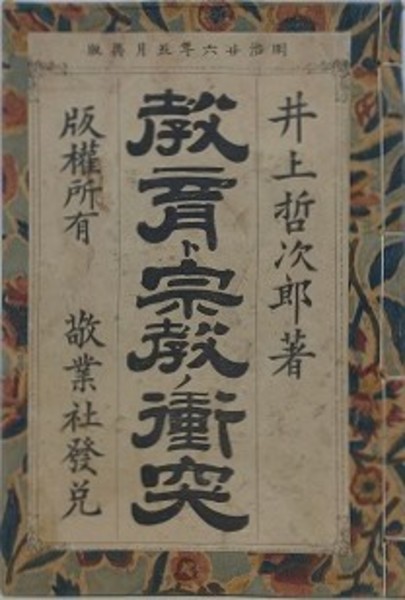 明治廿六年五月再版
井上哲次郎著
教育ト宗教ノ衝突
版權所有 敬業社發兌